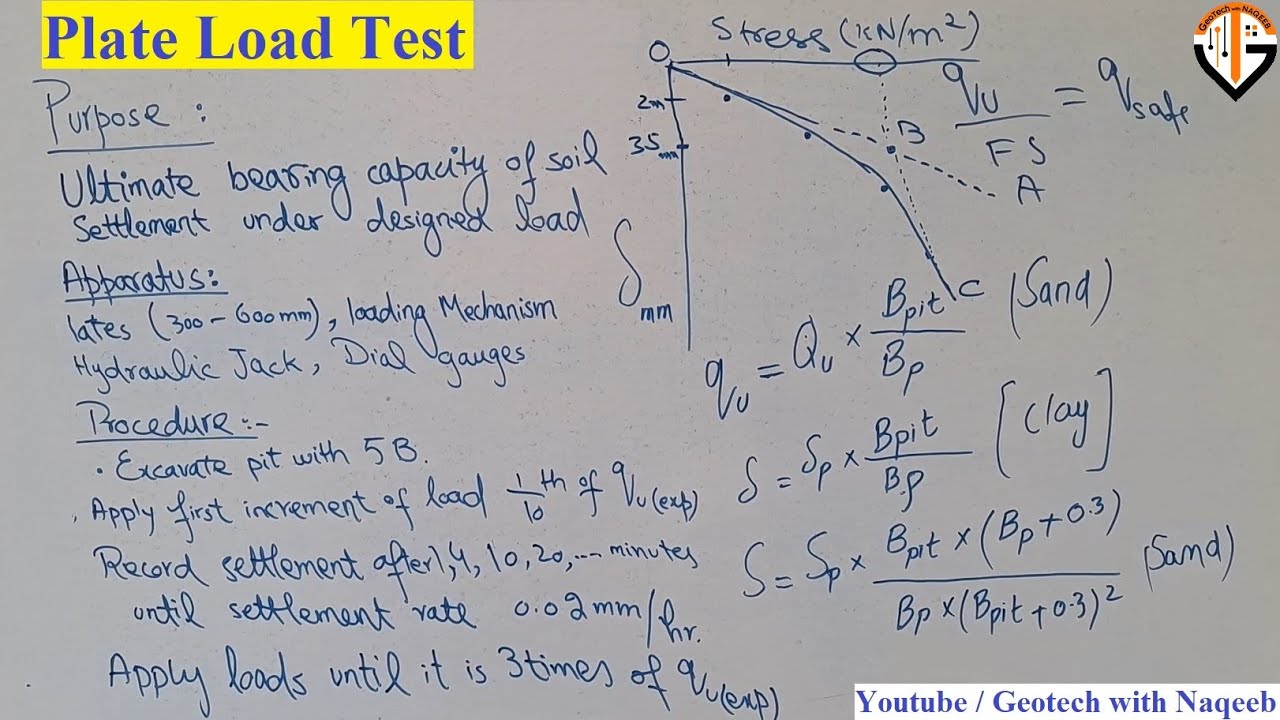 Plate Load Test
Purpose :
Ultimate bearing capacity of soil
Settlement under designed load
Apparatus:
lates (300-600mm), loading Mechanism
Hydraulic Jack, Dial gauges
Procedure:-
• Excavate pit with 5B.
. Apply first increment of load 1/10 th of qu(exp)
Record settlement after 1, 4, 10, 20, .... minutes
until settlement rate 0.02mm/hr.
Apply loads until it is 3 times of qu(exp)
O
Stress (kN/m²)
2m
35mm
δ mm
A
B
C
qu / FS = qsafe
qu = Qu × Bpit / Bp (Sand)
δ = δp × Bpit / B.p [Clay]
S = Sp × Bpit × (Bp + 0.3) / Bp × (Bpit + 0.3)² (Sand)
GeoTech with NAQEEB
Youtube / Geotech with Naqeeb